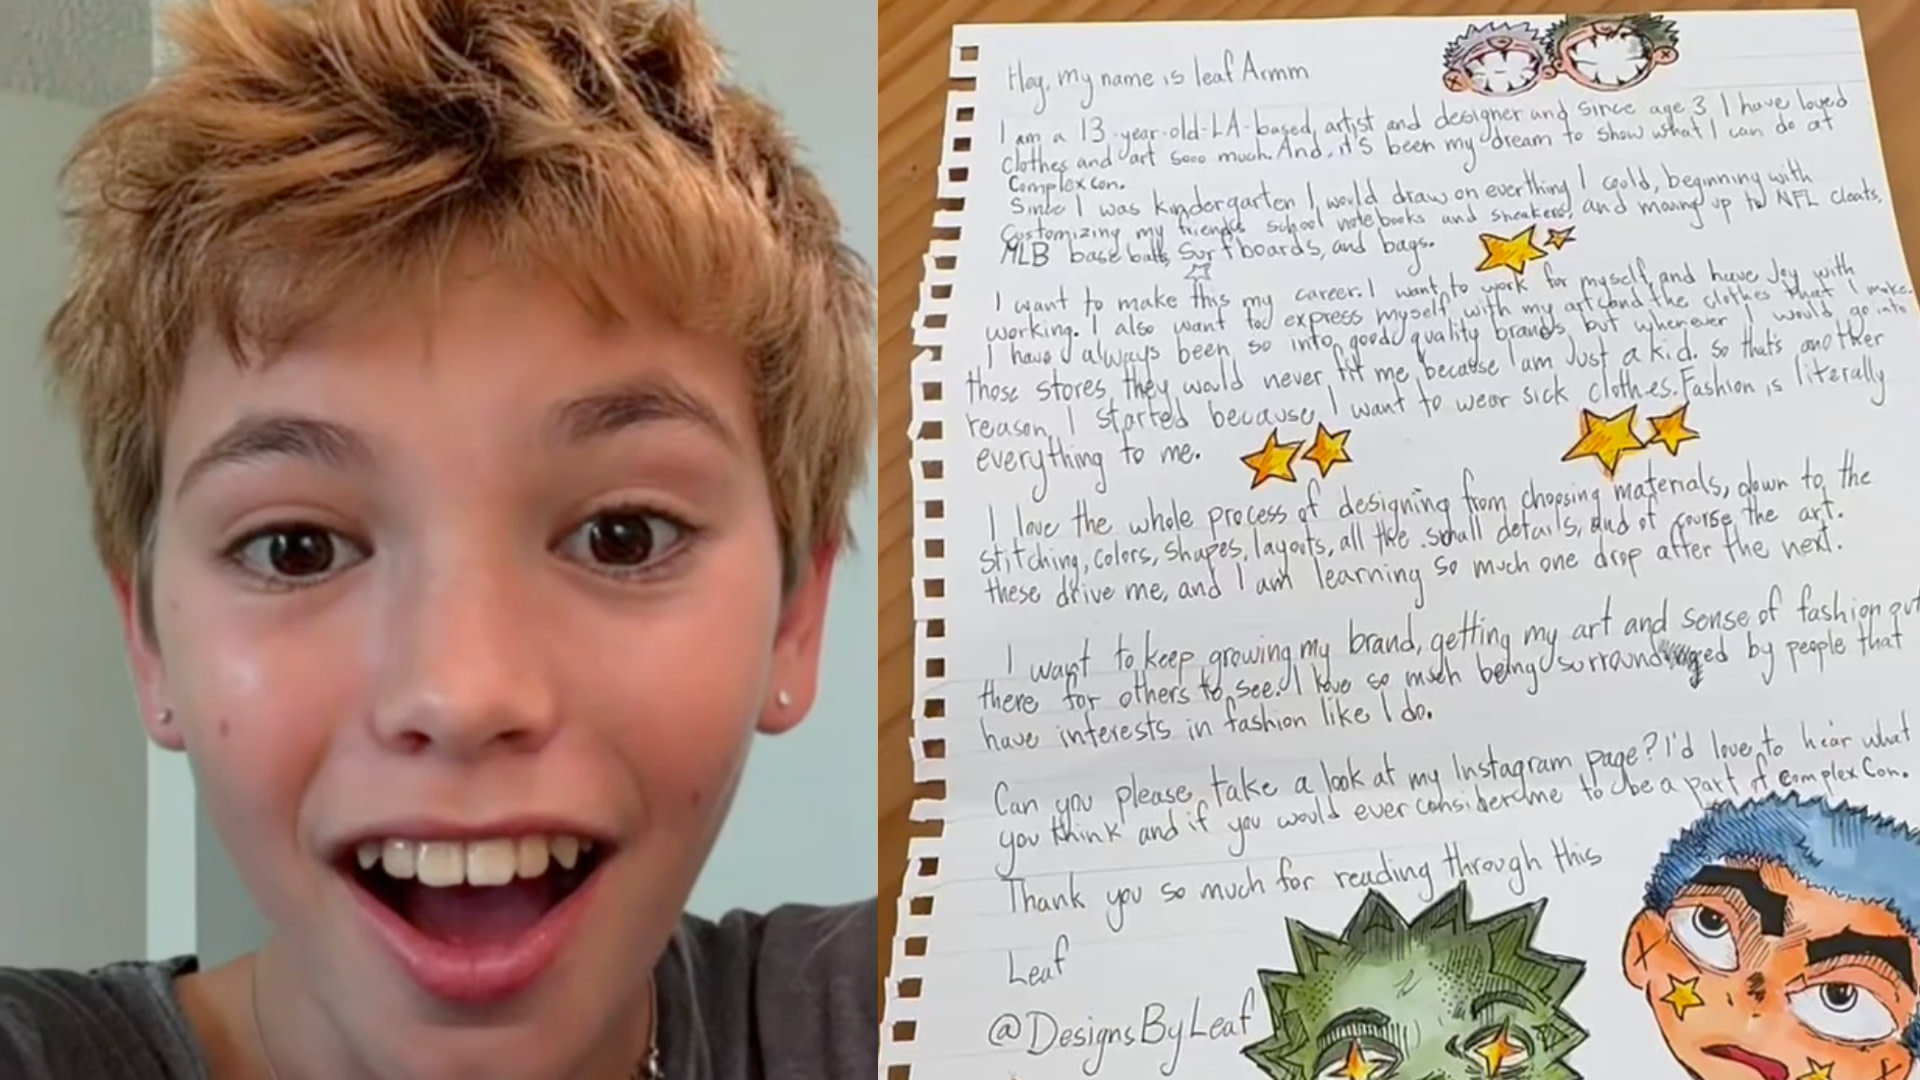 Hey, my name is leaf Armm
I am a 13-year-old-LA-based, artist and designer and since age 3 I have loved
clothes and art sooo much. And, it's been my dream to show what I can do at
Complexcon.
Since I was kindergarten I would draw on everthing I could, beginning with
Customizing my friends school notebooks and sneakers, and moving up to NFL cleats,
MLB base balls, surfboards, and bags.
I want to make this my career. I want to work for myself, and have Joy with
working. I also want to express myself with my art and the clothes that I make.
I have always been so into good quality brands, but whenever I would go into
those stores, they would never fit me because I am Just a kid. So that's another
reason, I started because, I want to wear sick clothes. Fashion is literally
everything to me.
I love the whole process of designing from choosing materials, down to the
stitching, colors, shapes, layouts, all the small details, and of course the art.
these drive me, and I am learning so much one drop after the next.
I want to keep growing my brand, getting my art and sense of fashion out
there for others to see. I love so much being surrounded by people that
have interests in fashion like I do.
Can you please take a look at my Instagram page? I'd love to hear what
you think and if you would ever consider me to be a part of ComplexCon.
Thank you so much for reading through this
Leaf
@DesignsByLeaf